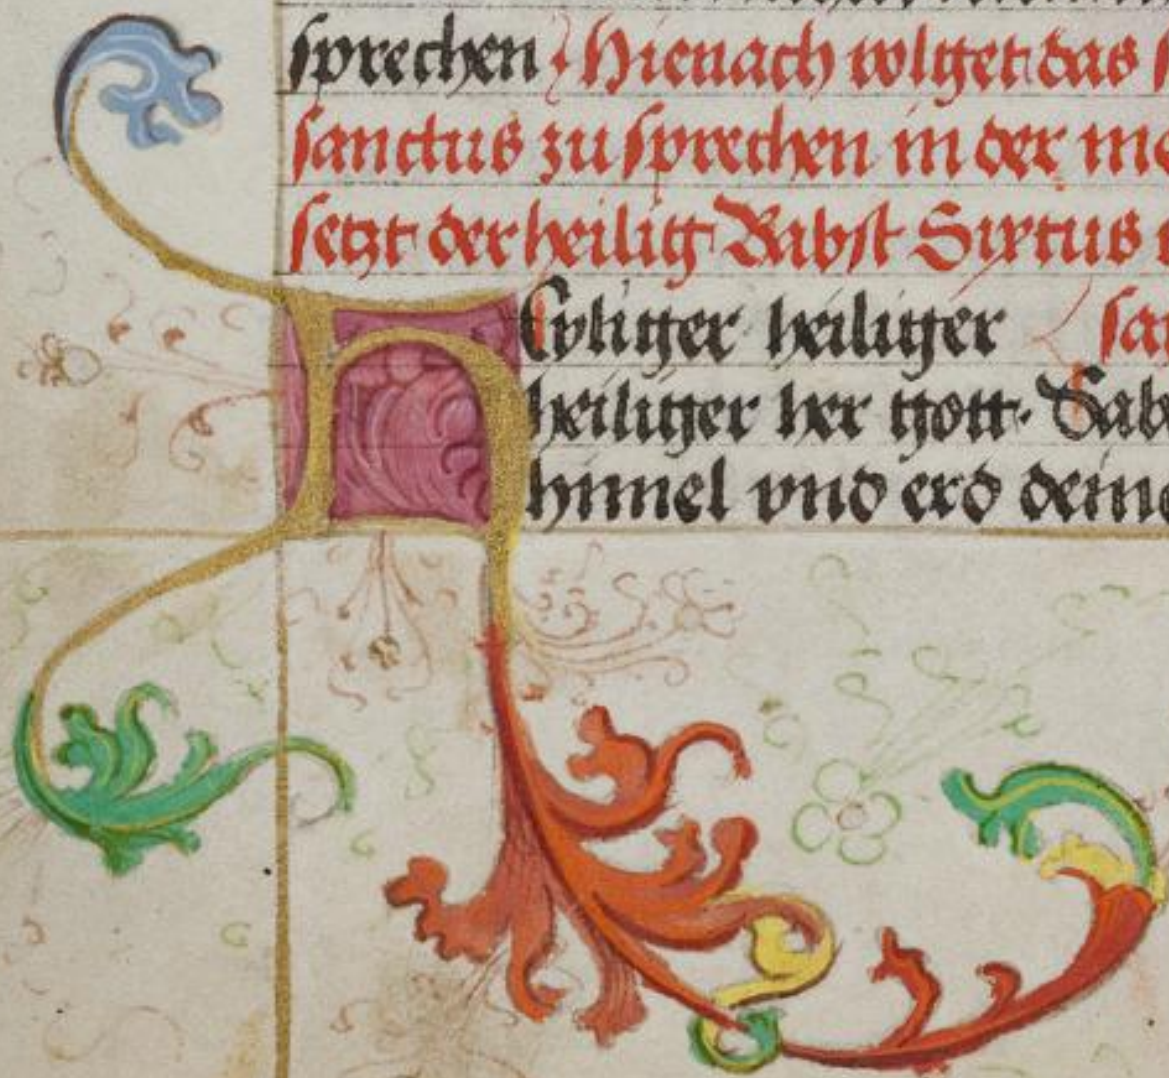 sprechen Hienach volget das
sanctus zu sprechen in der
setzt der heilig Babst Sixtus
HEyliger heiliger
heiliger her gott. Sab
himel vnd erd deine